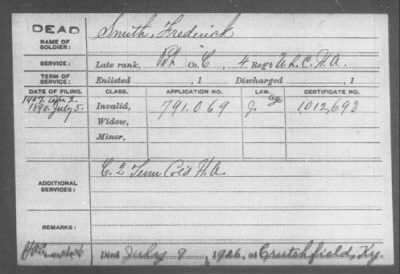 DEAD
NAME OF SOLDIER:
Smith, Frederick
SERVICE:
Late rank, Pvt Co. C, 4 Reg't U.S.C.H.A.
TERM OF SERVICE:
Enlisted , 1 Discharged , 1
DATE OF FILING. CLASS. APPLICATION NO. LAW. CERTIFICATE NO.
1890. July 5. Invalid, 791.069 J. 1,012,693
Widow,
Minor,
ADDITIONAL SERVICES:
C. 2 Tenn Col'd H.A.
REMARKS:
Died July 9, 1926, at Crutchfield, Ky.